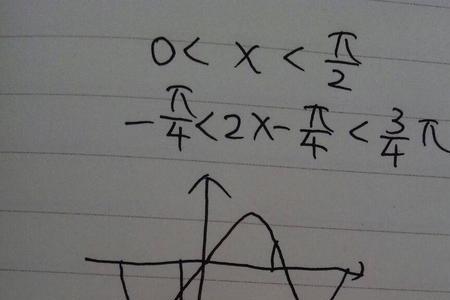 0 < x < π/2
-π/4 < 2x - π/4 < 3/4 π